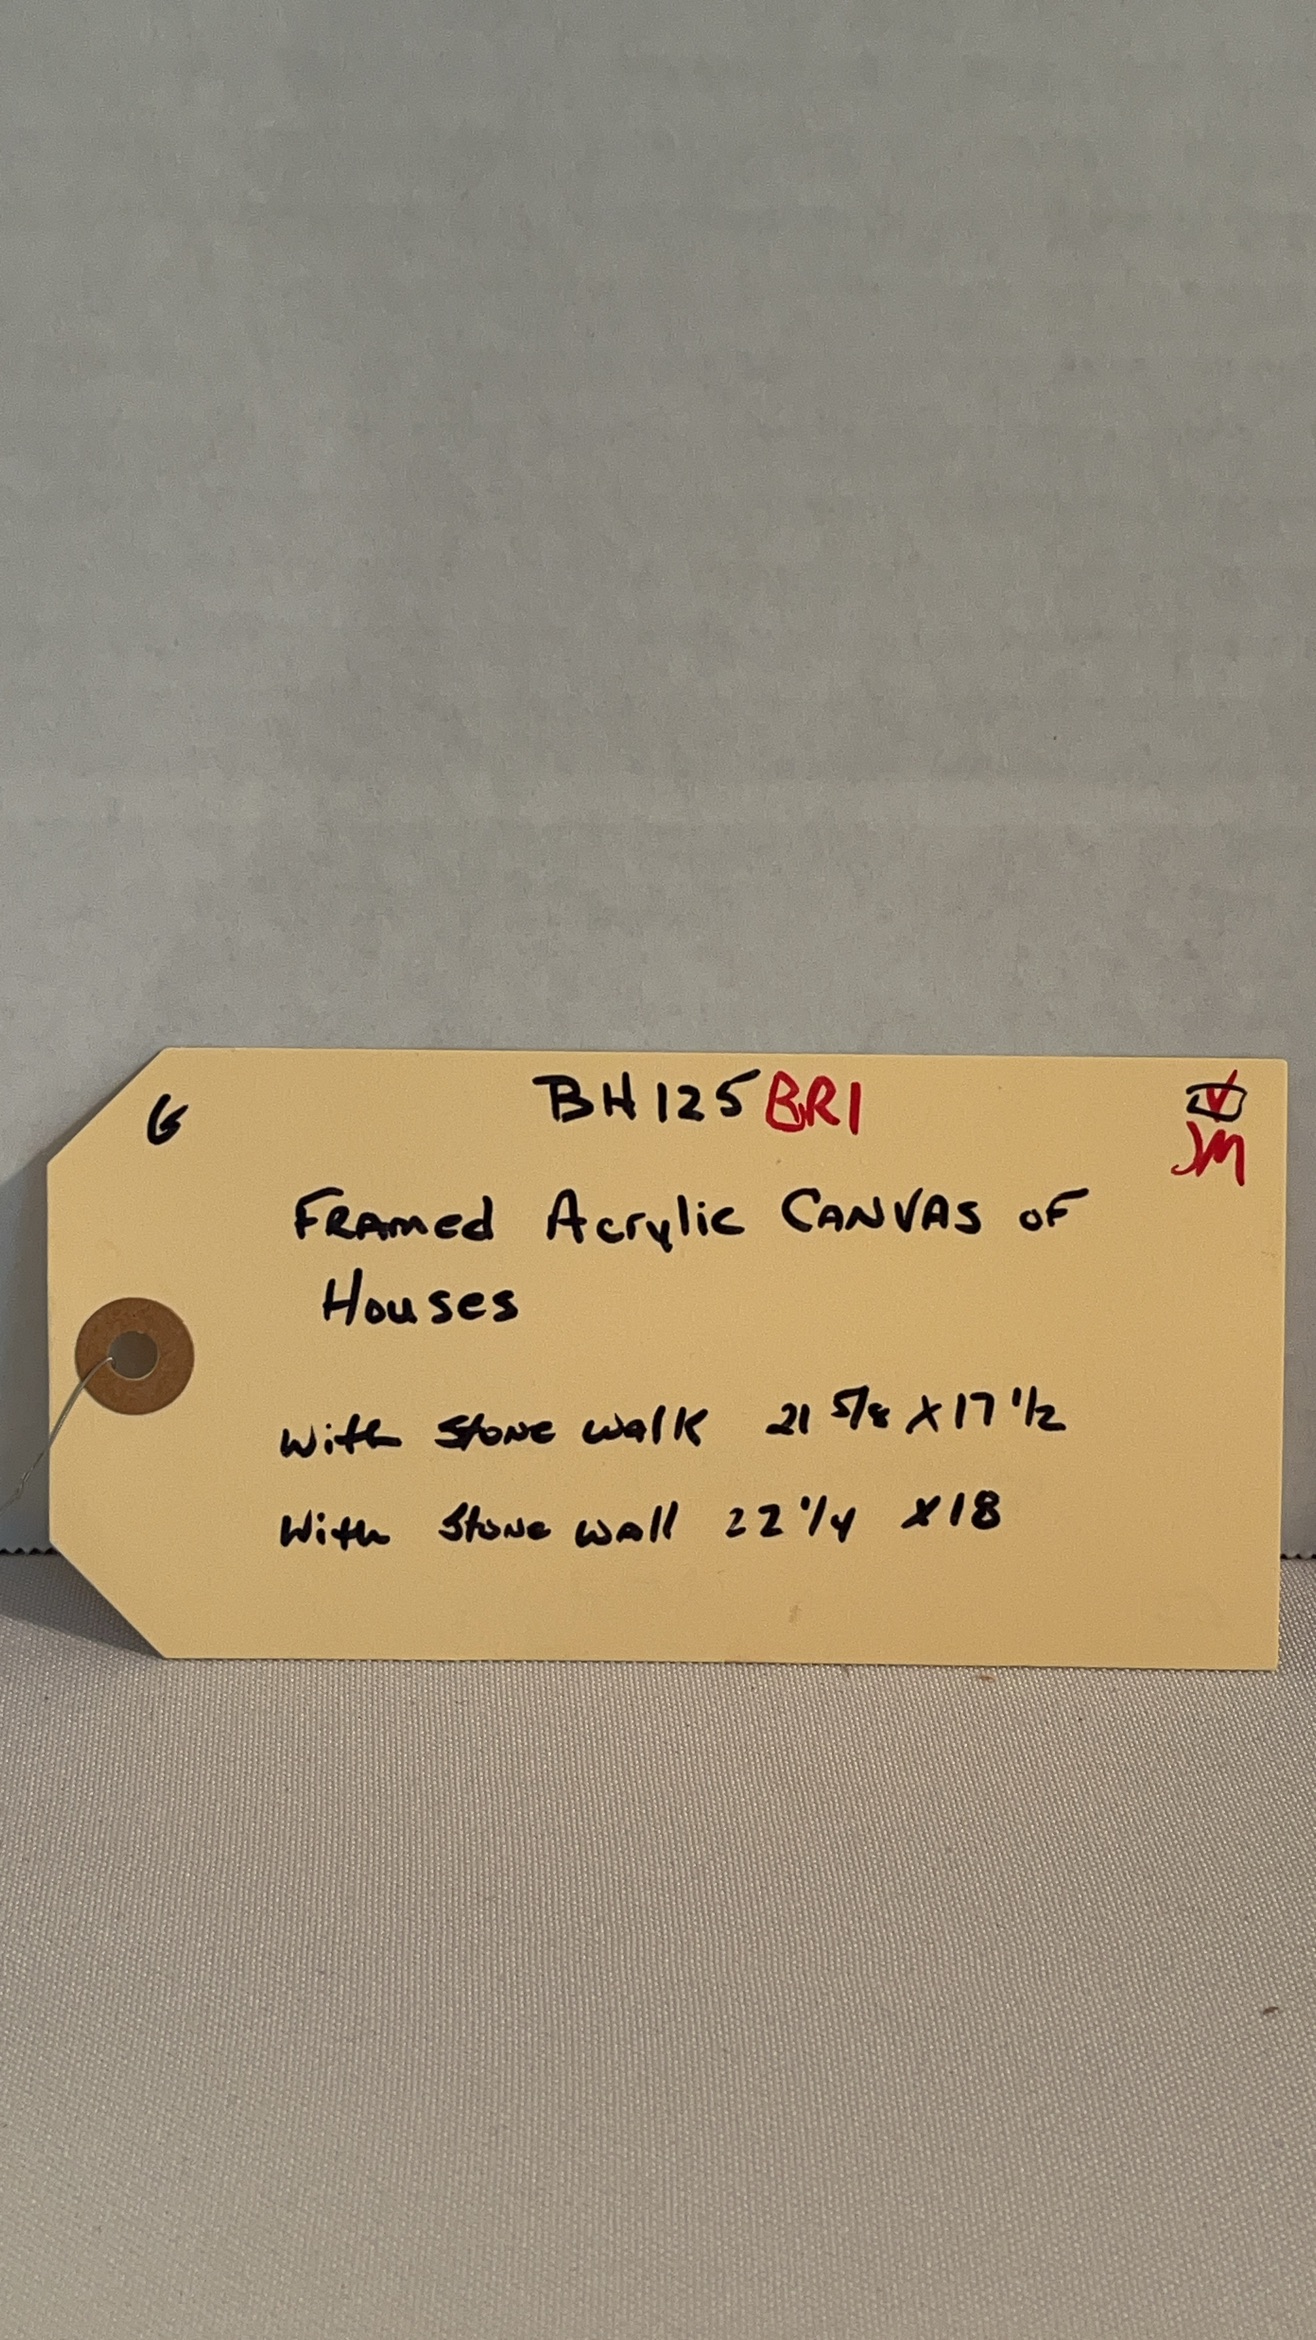 G BH125BR1 ☑
JM
FRAMED Acrylic CANVAS OF
Houses
With Stone walk 21 5/8 X 17 1/2
With Stone wall 22 1/4 X 18